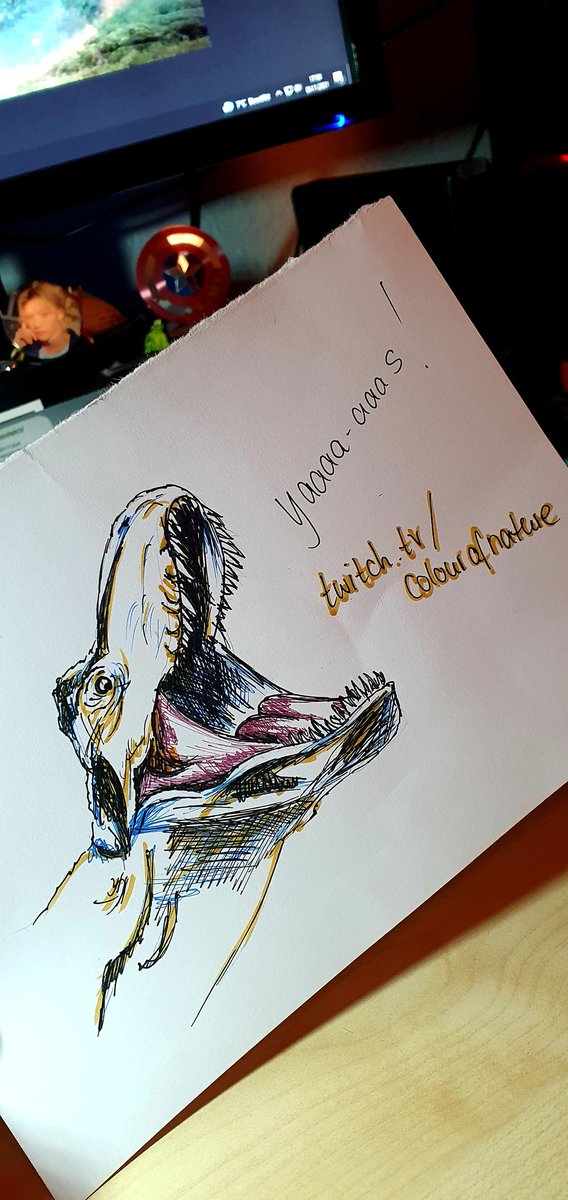 Yaaaa-aaas!
twitch.tv/
colourofnature